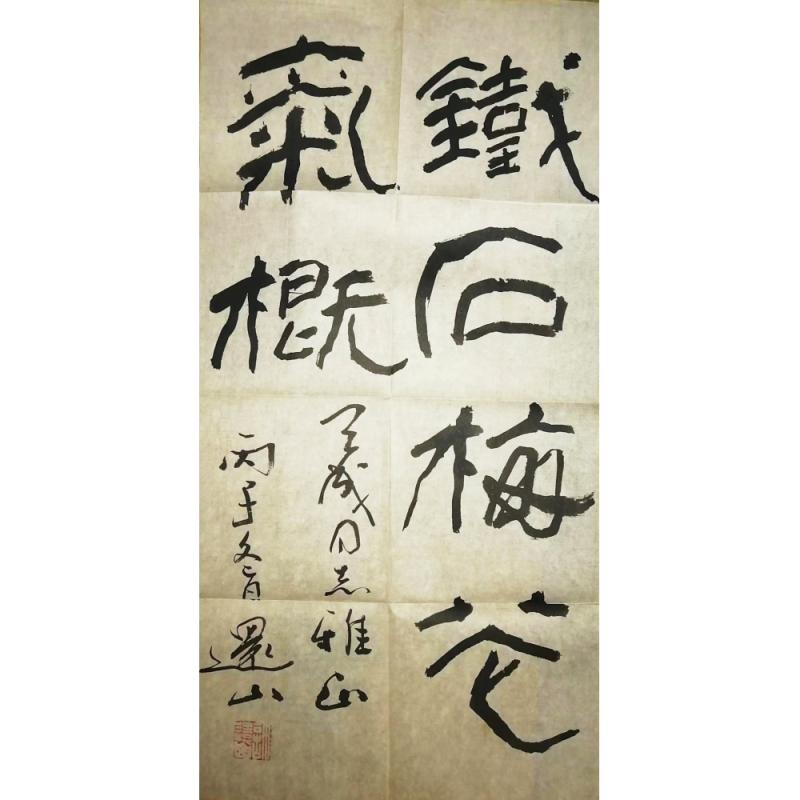 鐵石梅花
氣概
天成同志雅正
丙子冬月還山